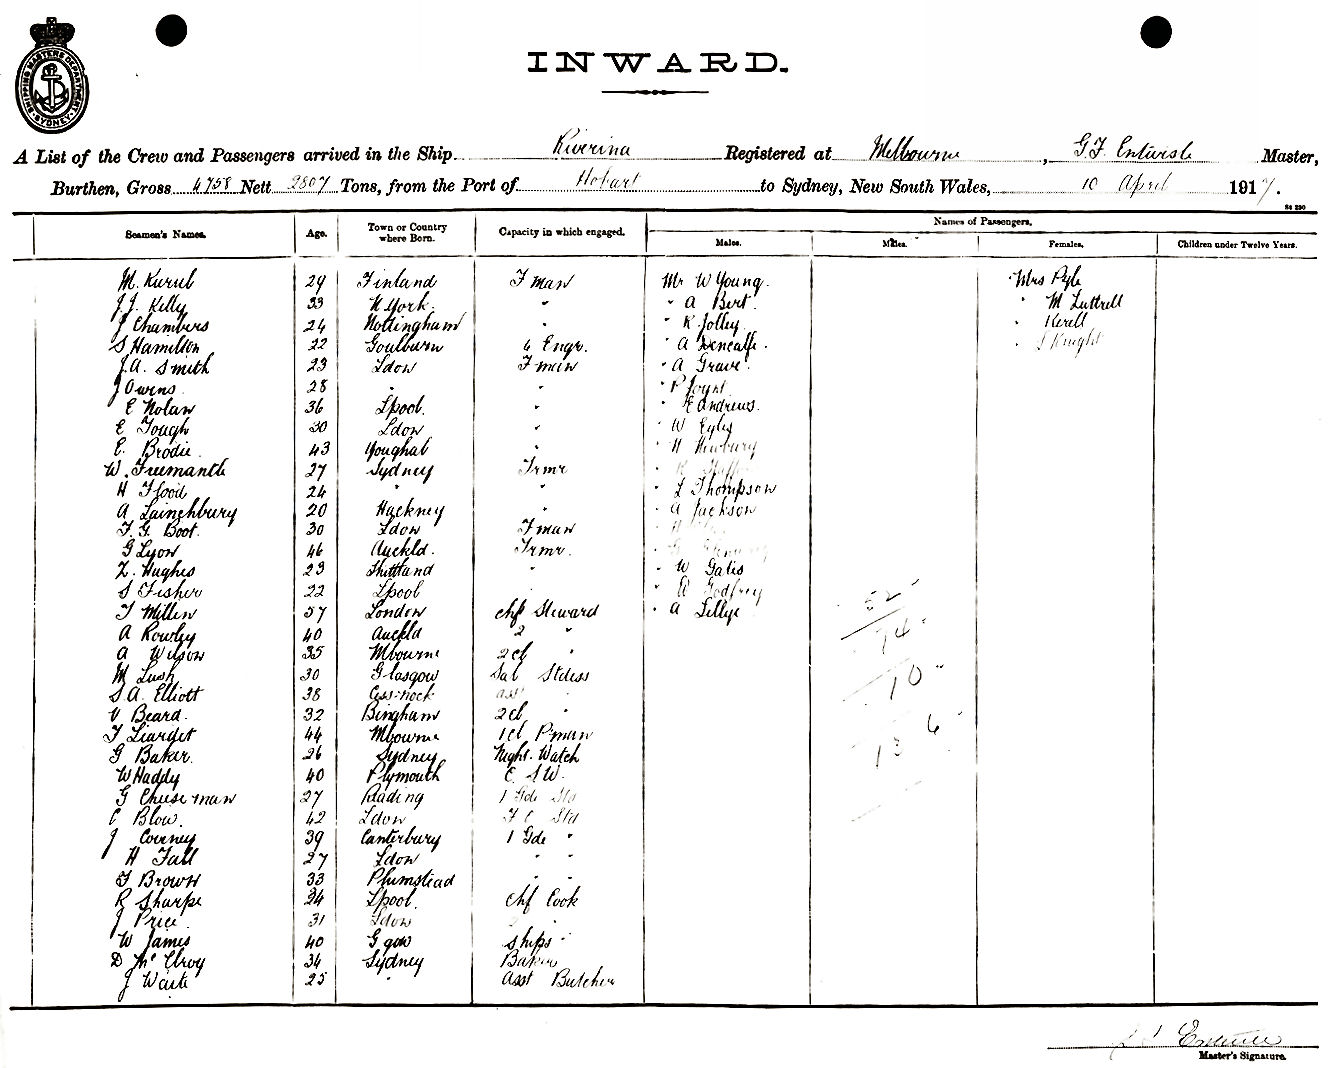 SHIPPING MASTERS DEPARTMENT SYDNEY
INWARD.
A List of the Crew and Passengers arrived in the Ship Riverina Registered at Melbourne, G.F. Entwisle Master,
Burthen, Gross 4758 Nett 2807 Tons, from the Port of Hobart to Sydney, New South Wales, 10 April 1917.
Names of Passengers.
Seamen's Names. Age. Town or Country where Born. Capacity in which engaged. Males. Males. Females. Children under Twelve Years.
M. 29 Finland F man Mr W Young. Mrs Pyle
J.J. Kelly 33 N York. " " A Bert. " M Luttrell
J Chambers 24 Nottingham " " R Jolley. "
S Hamilton 22 Goulburn 6 Engr. " A " S Knight
J.A. Smith 23 Ldon F man " A Grave.
J Owens 28 " " "
E Nolan 36 Lpool. " " Andrews.
E Tough 30 Ldon " " W Eyles
E. Brodie. 43 Youghal " " H Newbury
W. Freemantle 27 Sydney Trmr "
H Flood 24 " " " L Thompson
A Lainchbury 20 Hackney " A Jackson
F.G. Boot. 30 Ldon F man
G Lyon 46 Auckld. Trmr. "
Z. Hughes 23 " " W Gates
S Fisher 22 Lpool " Godfrey 52
T Millen 57 London chf Steward " A Lillye
A Rowley 40 Auckld 2 " 74
A Wilson 35 Mbourne 2 cl "
M Lush 30 Glasgow Sal Stdess 10
S.A. Elliott 38 Cess-nock ass "
V Beard. 32 Bingham 2 cl "
T Liardet 44 Mbourne 1 cl P'man 6
G Baker. 26 Sydney Night. Watch 13
W Haddy 40 Plymouth
G Cheeseman 27 Reading 1 Gde Std
C Blow. 42 Ldon Std
J Coveney 39 Canterbury 1 Gde "
H Tall 27 Ldon " "
F Brown 33 Plumstead " "
R Sharpe 34 Lpool. chf Cook
J Price. 31 Ldon
W James 40 G gow Ships "
D McElroy 34 Sydney Baker
J Waite 25 " Asst Butcher
Master's Signature.